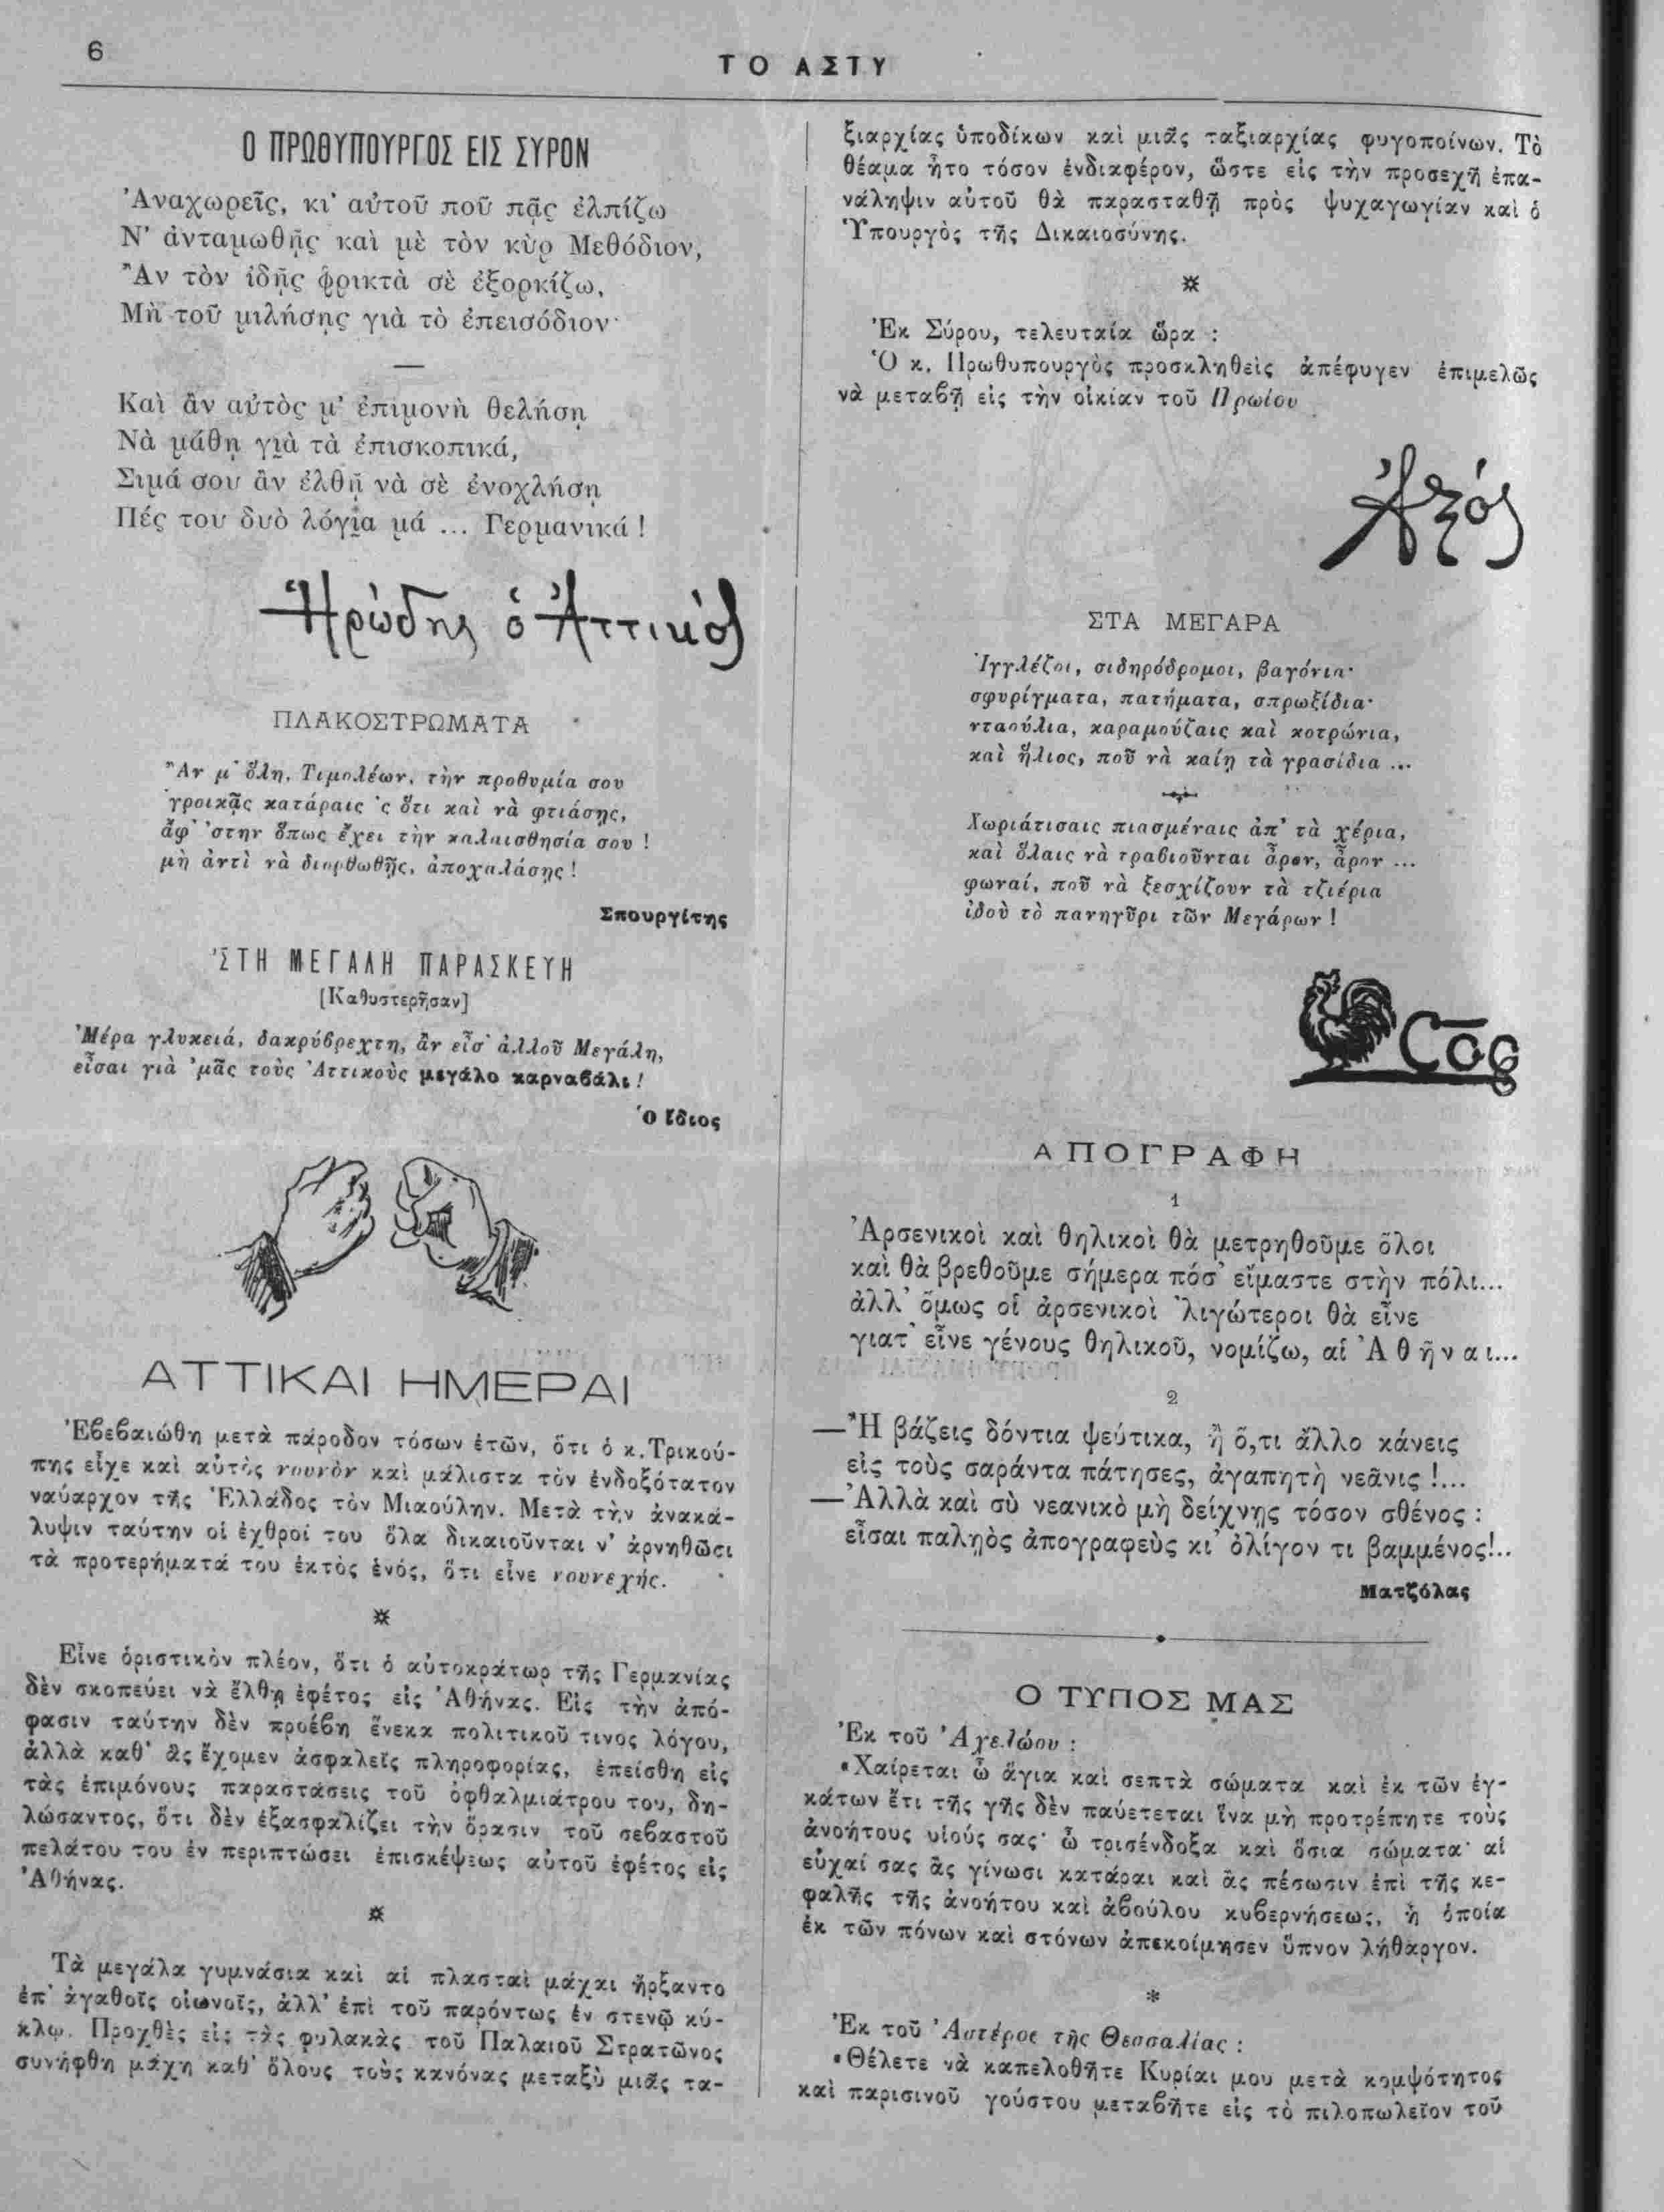 6
ΤΟ ΑΣΤΥ
Ο ΠΡΩΘΥΠΟΥΡΓΟΣ ΕΙΣ ΣΥΡΟΝ
Ἀναχωρεῖς, κι' αὐτοῦ ποῦ πᾷς ἐλπίζω
Ν' ἀνταμωθῇς καὶ μὲ τὸν κὺρ Μεθόδιον,
Ἂν τὸν ἰδῇς φρικτὰ σὲ ἐξορκίζω,
Μὴ τοῦ μιλήσῃς γιὰ τὸ ἐπεισόδιον·
Καὶ ἂν αὐτὸς μ' ἐπιμονὴ θελήσῃ
Νὰ μάθῃ γιὰ τὰ ἐπισκοπικά,
Σιμά σου ἂν ἐλθῇ νὰ σὲ ἐνοχλήσῃ
Πές του δυὸ λόγια μά ... Γερμανικά !
Ἡρώδης ὁ Ἀττικός
ΠΛΑΚΟΣΤΡΩΜΑΤΑ
Ἂν μ' ὅλη, Τιμολέων, τὴν προθυμία σου
γροικᾷς κατάραις 'ς ὅτι καὶ νὰ φτιάσῃς,
ἄφ' 'στην ὅπως ἔχει τὴν καλαισθησία σου !
μὴ ἀντὶ νὰ διορθωθῇς, ἀποχαλάσῃς !
Σπουργίτης
'ΣΤΗ ΜΕΓΑΛΗ ΠΑΡΑΣΚΕΥΗ
[Καθυστερῆσαν]
'Μέρα γλυκειά, δακρύβρεχτη, ἂν εἶσ' ἀλλοῦ Μεγάλη,
εἶσαι γιὰ 'μᾶς τοὺς Ἀττικοὺς μεγάλο καρναβάλι !
Ὁ ἴδιος
ΑΤΤΙΚΑΙ ΗΜΕΡΑΙ
Ἐβεβαιώθη μετὰ πάροδον τόσων ἐτῶν, ὅτι ὁ κ. Τρικού-
πης εἶχε καὶ αὐτὸς νουνὸν καὶ μάλιστα τὸν ἐνδοξότατον
ναύαρχον τῆς Ἑλλάδος τὸν Μιαούλην. Μετὰ τὴν ἀνακά-
λυψιν ταύτην οἱ ἐχθροί του ὅλα δικαιοῦνται ν' ἀρνηθῶσι
τὰ προτερήματά του ἐκτὸς ἑνός, ὅτι εἶνε νουνεχής.
Εἶνε ὁριστικὸν πλέον, ὅτι ὁ αὐτοκράτωρ τῆς Γερμανίας
δὲν σκοπεύει νὰ ἔλθῃ ἐφέτος εἰς Ἀθήνας. Εἰς τὴν ἀπό-
φασιν ταύτην δὲν προέβη ἕνεκα πολιτικοῦ τινος λόγου,
ἀλλὰ καθ' ἃς ἔχομεν ἀσφαλεῖς πληροφορίας, ἐπείσθη εἰς
τὰς ἐπιμόνους παραστάσεις τοῦ ὀφθαλμιάτρου του, δη-
λώσαντος, ὅτι δὲν ἐξασφαλίζει τὴν ὅρασιν τοῦ σεβαστοῦ
πελάτου του ἐν περιπτώσει ἐπισκέψεως αὐτοῦ ἐφέτος εἰς
Ἀθήνας.
Τὰ μεγάλα γυμνάσια καὶ αἱ πλασταὶ μάχαι ἤρξαντο
ἐπ' ἀγαθοῖς οἰωνοῖς, ἀλλ' ἐπὶ τοῦ παρόντως ἐν στενῷ κύ-
κλῳ. Προχθὲς εἰς τὰς φυλακὰς τοῦ Παλαιοῦ Στρατῶνος
συνήφθη μάχη καθ' ὅλους τοὺς κανόνας μεταξὺ μιᾶς τα-
ξιαρχίας ὑποδίκων καὶ μιᾶς ταξιαρχίας φυγοποίνων. Τὸ
θέαμα ἦτο τόσον ἐνδιαφέρον, ὥστε εἰς τὴν προσεχῆ ἐπα-
νάληψιν αὐτοῦ θὰ παρασταθῇ πρὸς ψυχαγωγίαν καὶ ὁ
Ὑπουργὸς τῆς Δικαιοσύνης.
Ἐκ Σύρου, τελευταία ὥρα :
Ὁ κ. Πρωθυπουργὸς προσκληθεὶς ἀπέφυγεν ἐπιμελῶς
νὰ μεταβῇ εἰς τὴν οἰκίαν τοῦ Πρωίου
ΣΤΑ ΜΕΓΑΡΑ
Ἰγγλέζοι, σιδηρόδρομοι, βαγόνια·
σφυρίγματα, πατήματα, σπρωξίδια·
νταούλια, καραμούζαις καὶ κοτρώνια,
καὶ ἥλιος, ποῦ νὰ καίῃ τὰ γρασίδια ...
Χωριάτισαις πιασμέναις ἀπ' τὰ χέρια,
καὶ ὅλαις νὰ τραβιοῦνται ἆρον, ἆρον ...
φωναί, ποῦ νὰ ξεσχίζουν τὰ τζιέρια
ἰδοὺ τὸ πανηγῦρι τῶν Μεγάρων !
Cος
ΑΠΟΓΡΑΦΗ
1
Ἀρσενικοὶ καὶ θηλικοὶ θὰ μετρηθοῦμε ὅλοι
καὶ θὰ βρεθοῦμε σήμερα πόσ' εἴμαστε στὴν πόλι...
ἀλλ' ὅμως οἱ ἀρσενικοὶ 'λιγώτεροι θὰ εἶνε
γιατ' εἶνε γένους θηλικοῦ, νομίζω, αἱ Ἀθῆναι...
2
—Ἢ βάζεις δόντια ψεύτικα, ἢ ὅ,τι ἄλλο κάνεις
εἰς τοὺς σαράντα πάτησες, ἀγαπητὴ νεᾶνις !...
—Ἀλλὰ καὶ σὺ νεανικὸ μὴ δείχνῃς τόσον σθένος :
εἶσαι παληὸς ἀπογραφεὺς κι' ὀλίγον τι βαμμένος!..
Ματζόλας
Ο ΤΥΠΟΣ ΜΑΣ
Ἐκ τοῦ Ἀχελώου :
«Χαίρεται ὦ ἅγια καὶ σεπτὰ σώματα καὶ ἐκ τῶν ἐγ-
κάτων ἔτι τῆς γῆς δὲν παύετεται ἵνα μὴ προτρέπητε τοὺς
ἀνοήτους υἱούς σας· ὦ τρισένδοξα καὶ ὅσια σώματα· αἱ
εὐχαί σας ἂς γίνωσι κατάραι καὶ ἂς πέσωσιν ἐπὶ τῆς κε-
φαλῆς τῆς ἀνοήτου καὶ ἀβούλου κυβερνήσεως, ἡ ὁποία
ἐκ τῶν πόνων καὶ στόνων ἀπεκοίμησεν ὕπνον λήθαργον.
Ἐκ τοῦ Ἀστέρος τῆς Θεσσαλίας :
«Θέλετε νὰ καπελοθῆτε Κυρίαι μου μετὰ κομψότητος
καὶ παρισινοῦ γούστου μεταβῆτε εἰς τὸ πιλοπωλεῖον τοῦ